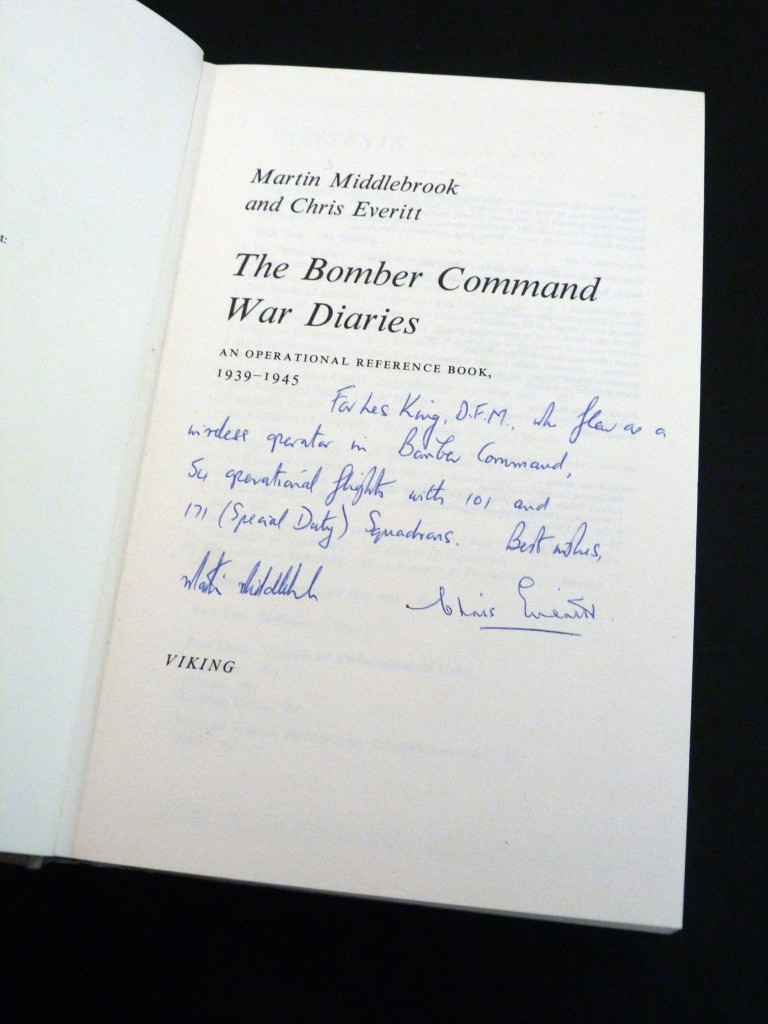 t:
Martin Middlebrook
and Chris Everitt
The Bomber Command
War Diaries
AN OPERATIONAL REFERENCE BOOK,
1939–1945
For Les King, D.F.M., who flew as a
wireless operator in Bomber Command,
54 operational flights with 101 and
171 (Special Duty) Squadrons. Best wishes,
Martin Middlebrook Chris Everitt
VIKING